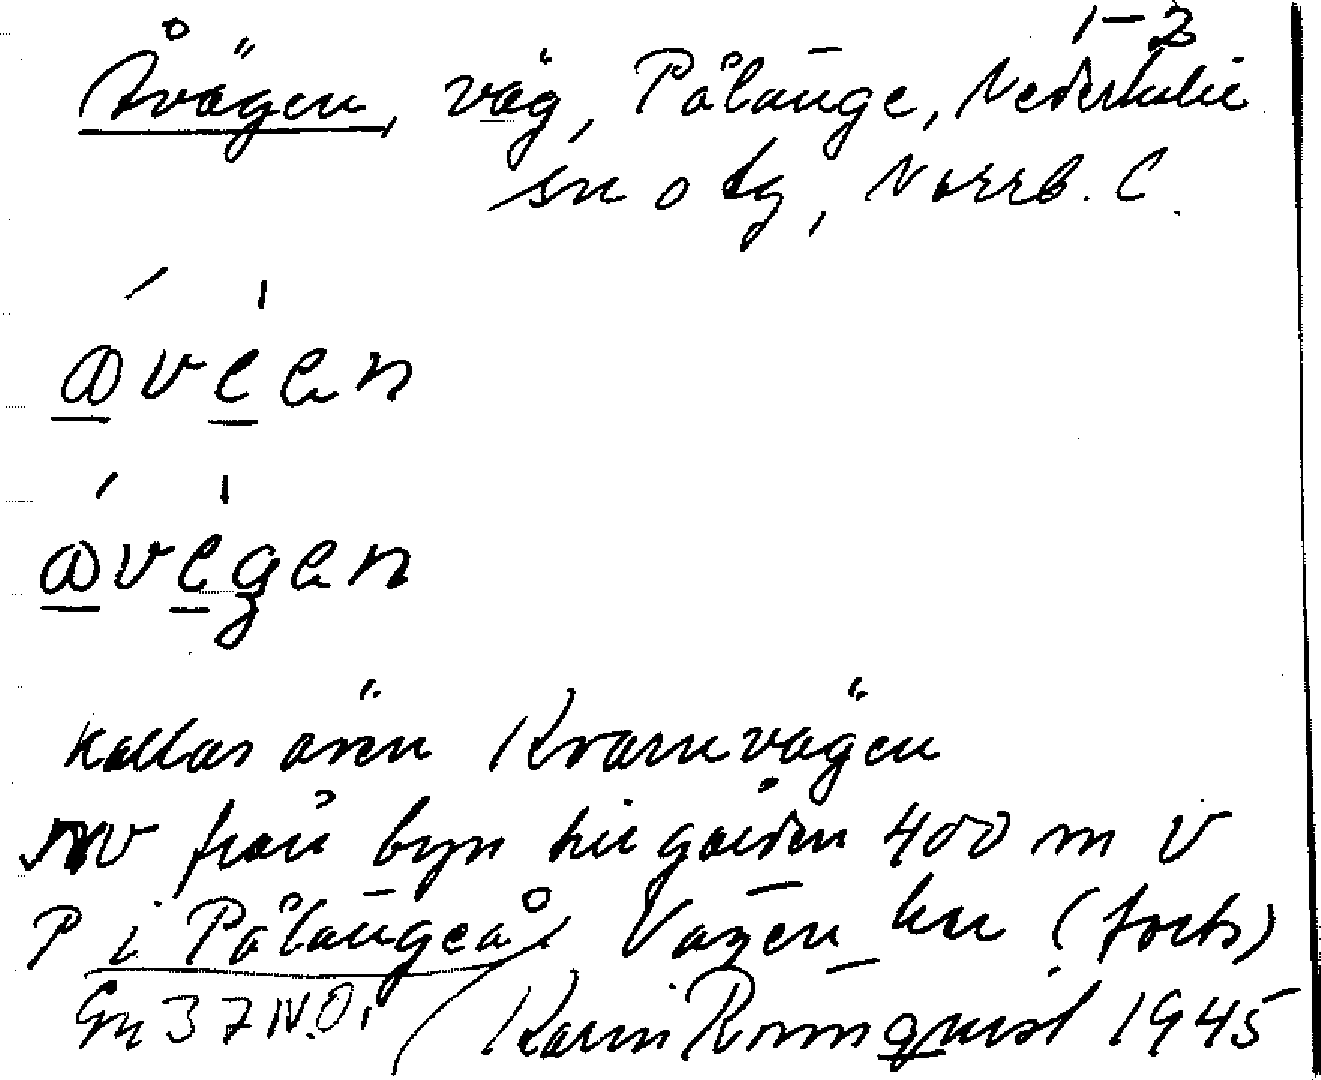 1–2
Åvägen, väg, Pålänge, Nederkalix
sn o tg, Norrb. l.
ɑvéen
ɑvégen
kallas även Kvarnvägen
NV från byn till gården 400 m V
P i Pålängeå. Vägen (forts)
Gn 37 IV. Karin Ronnquist 1945